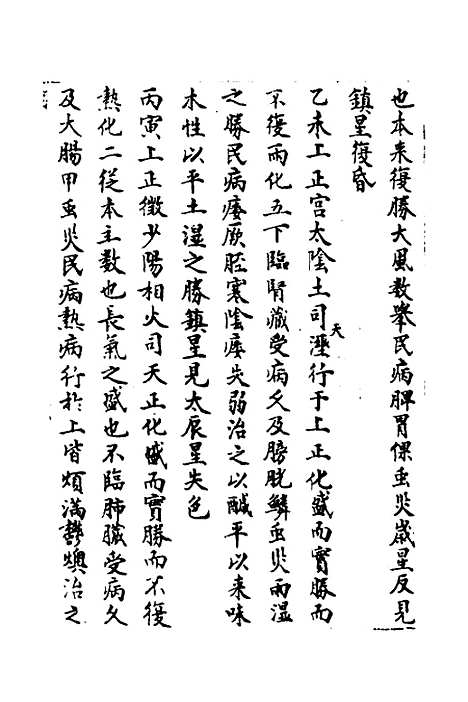 也木来復勝大風数舉民病脾胃倮虫災歳星反見
鎮星復昏
乙未上正宫太陰土司天溼行于上正化盛而實勝而
不復雨化五下臨腎藏受病久及膀胱鱗虫災雨湿
之勝民病痿厥胫寒陰痿失弱治之以鹹平以来味
木性以平土湿之勝鎮星見太辰星失色
丙寅上正徴少陽相火司天正化盛而實勝而不復
熱化二従本主数也長氣之盛也不臨肺臓受病久
及大腸甲虫災民病熱病行於上皆煩滿鬱燠治之